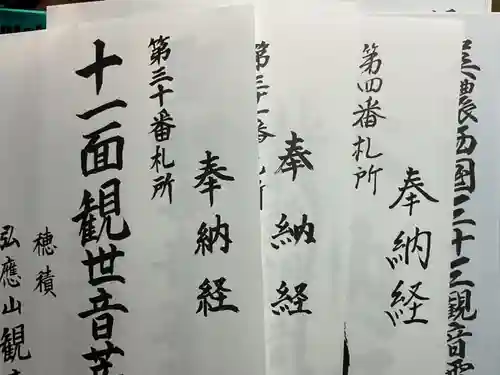 美濃西国三十三観音霊
奉納経
第四番札所
奉納経
第三十一番札所
奉納経
第三十番札所
十一面観世音菩
穂積
弘應山観